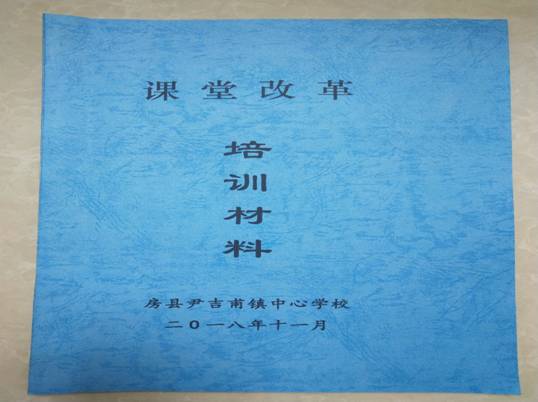 课堂改革
培
训
材
料
房县尹吉甫镇中心学校
二0一八年十一月